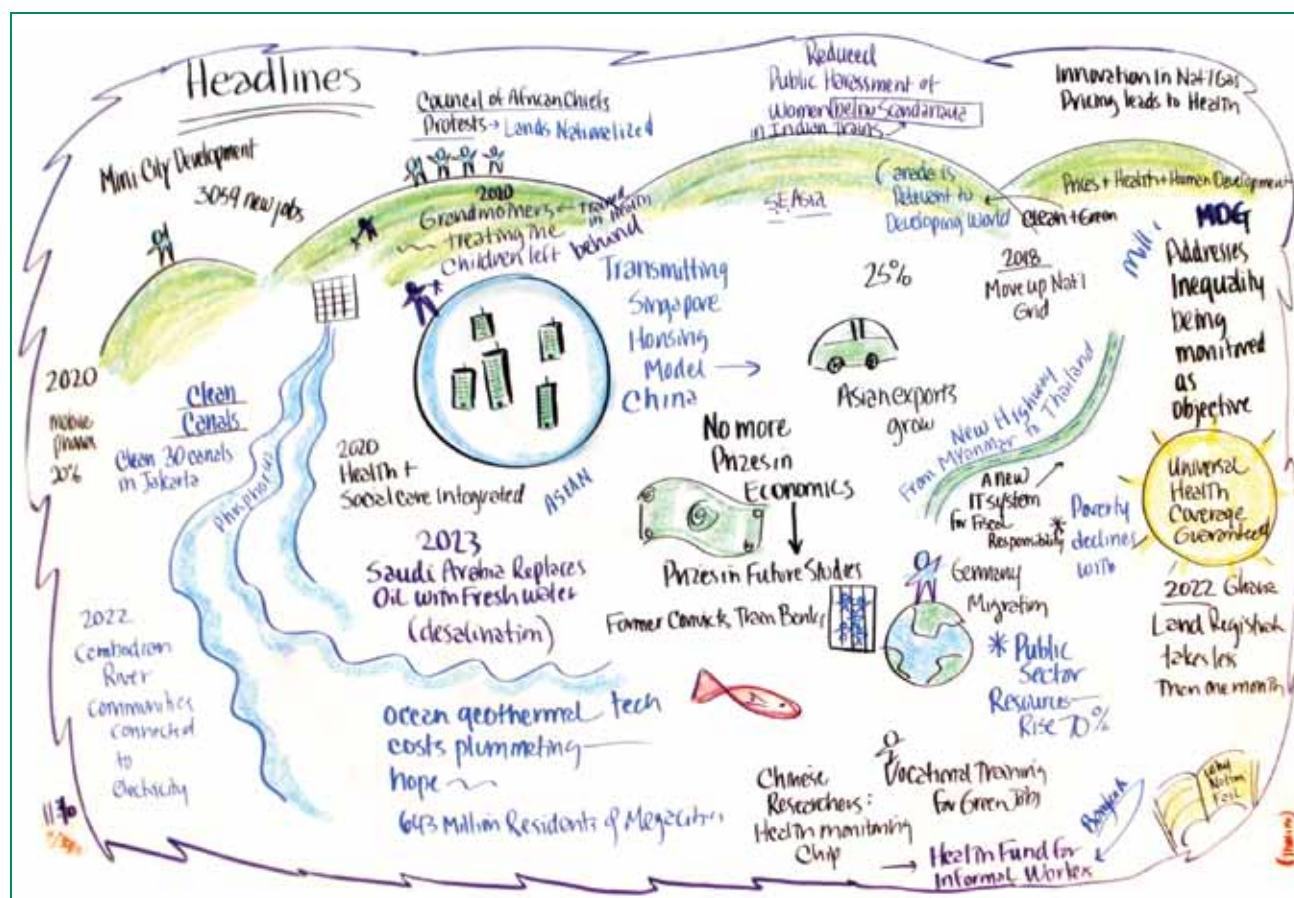 Headlines
Mini City Development
3059 new jobs
Council of African Chiefs
Protests → Lands Nationelized
Reduced
Public Harassment of
Women below Scandanavia
in Indian Trains
Innovation In Nat'l Gas
Pricing leads to Health
Prices + Health + Human Development
2020
Grandmothers ← trained
in health
treating the
Children left behind
S.E. Asia
Canada is
Relevant to
Developing World
Clean + Green
2018
Move up Nat'l
Grid
MDG
Addresses
Inequality
being
monitored
as
objective
Transmitting
Singapore
Housing
Model →
China
25%
Asian exports
grow
New Highway
From Myanmar to Thailand
2020
mobile
20%
Clean
Canals
Clean 30 canals
in Jakarta
Phosphorus
2020
Health +
Social care Integrated
ASIAN
No more
Prizes in
Economics
Prizes in Future Studies
A new
IT system
for Fiscal
Responsibility
* Poverty
declines
with
Universal
Health
Coverage
Guaranteed
2023
Saudi Arabia Replaces
Oil with Fresh Water
(desalination)
Former Convicts Train Bankers
Germany
Migration
* Public
Sector
Resources
Rise 70%
2022 Ghana
Land Registrat
takes less
Then one month
2022
Cambodian
River
Communities
connected
to
Electricity
ocean geothermal tech
costs plummeting
hope
643 Million Residents of Megacities
Chinese
Researchers:
Health monitoring
Chip
Vocational Training
for Green Jobs
Bangkok
→ Health Fund for
Informal Workers
Why
Nation
Fail